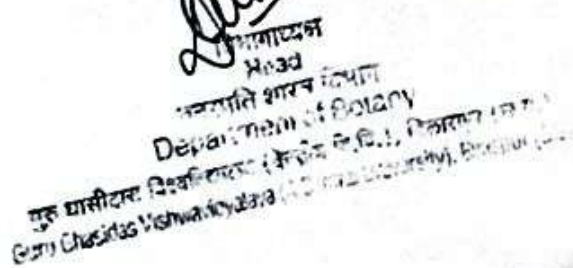 विभागाध्यक्ष
Head
वनस्पति शास्त्र विभाग
Department of Botany
गुरु घासीदास विश्वविद्यालय (केन्द्रीय वि.वि.), बिलासपुर (छ.ग.)
Guru Ghasidas Vishwavidyalaya (A Central University), Bilaspur (C.G.)